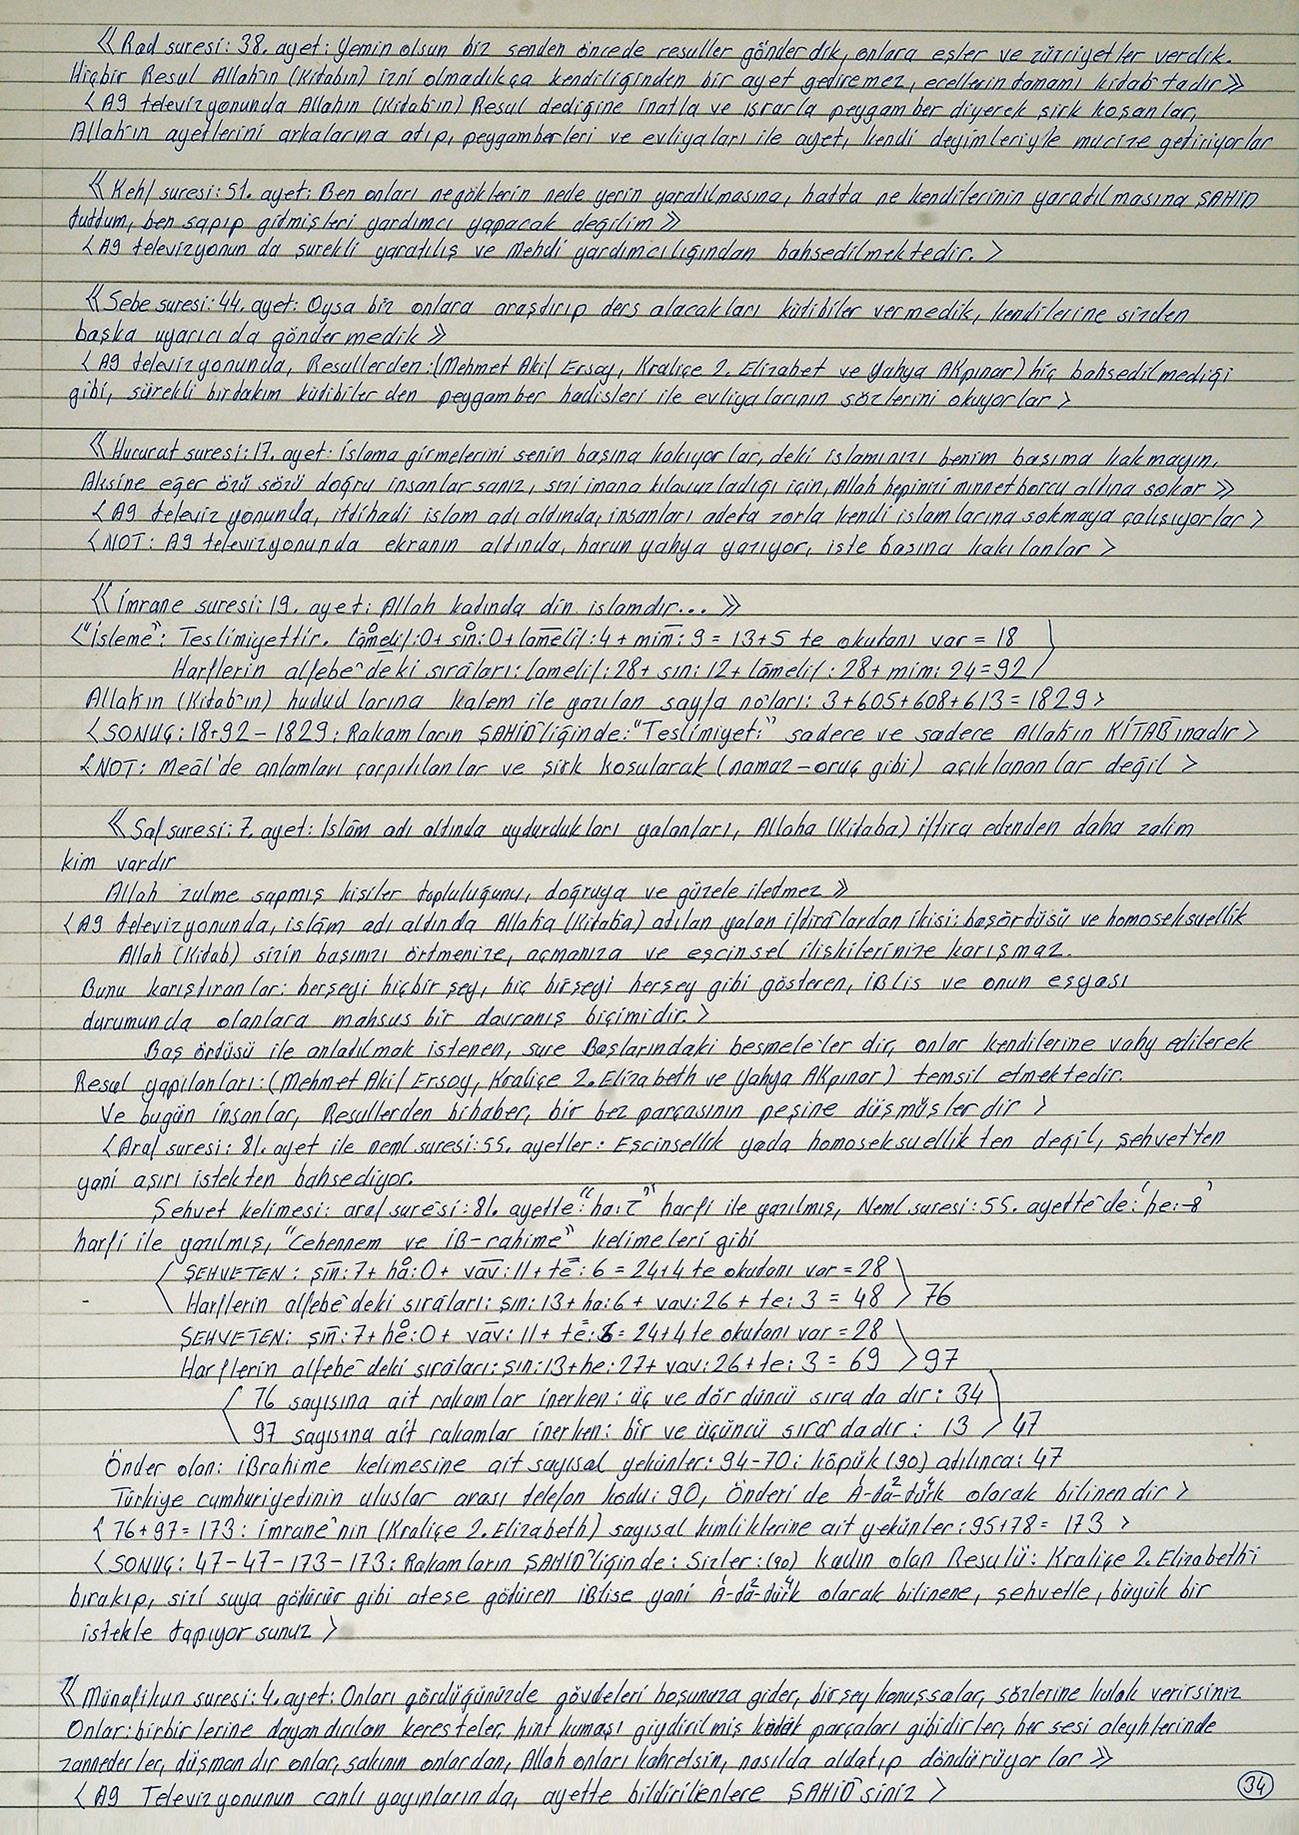 《 Rad suresi: 38. ayet: Yemin olsun biz senden öncede resuller gönderdik, onlara eşler ve zürriyetler verdik.
Hiçbir Resul Allah'ın (Kitabın) izni olmadıkça kendiliğinden bir ayet getiremez, ecellerin tamamı kitab'tadır 》
< A9 televizyonunda Allahın (Kitab'ın) Resul dediğine inatla ve ısrarla peygamber diyerek şirk koşanlar,
Allah'ın ayetlerini arkalarına atıp, peygamberleri ve evliyaları ile ayet, kendi deyimleriyle mucize getiriyorlar
《 Kehf suresi: 51. ayet: Ben onları negöklerin nede yerin yaratılmasına, hatta ne kendilerinin yaratılmasına ŞAHİD
tuttum, ben sapıp gitmişleri yardımcı yapacak değilim 》
< A9 televizyonun da sürekli yaratılış ve Mehdi yardımcılığından bahsedilmektedir. >
《 Sebe suresi: 44. ayet: Oysa biz onlara araştırıp ders alacakları kütibiler vermedik, kendilerine sizden
başka uyarıcı da göndermedik 》
< A9 televizyonunda, Resullerden: (Mehmet Akif Ersoy, Kraliçe 2. Elizabet ve Yahya AKpınar) hiç bahsedilmediği
gibi, sürekli birtakım kütibiler den peygamber hadisleri ile evliyalarının sözlerini okuyorlar >
《 Hucurat suresi: 17. ayet: İslama girmelerini senin başına kakıyorlar, deki islamınızı benim başıma kakmayın,
Aksine eğer özü sözü doğru insanlar sanız, sizi imana kılavuzladığı için, Allah hepinizi minnet borcu altına sokar 》
< A9 televiz yonunda, ittihadi islam adı altında, insanları adeta zorla kendi islamlarına sokmaya çalışıyorlar >
< NOT: A9 televizyonunda ekranın altında, harun yahya yazıyor, iste basına kakılanlar >
《 İmrane suresi: 19. ayet: Allah katında din islamdır... 》
< "İsleme": Teslimiyettir. lâmelif: 0 + sin: 0 + lamelif: 4 + mim: 9 = 13 + 5 te okutanı var = 18
Harflerin alfebe'deki sıraları: lamelif: 28 + sın: 12 + lâmelif: 28 + mim: 24 = 92
Allah'ın (Kitab'ın) hudud larına kalem ile yazılan sayfa no'ları: 3 + 605 + 608 + 613 = 1829 >
< SONUÇ: 18+92 - 1829: Rakamların ŞAHİD'liğinde: "Teslimiyet:" sadece ve sadece Allah'ın KİTAB'ınadır >
< NOT: Meâl'de anlamları çarpıtılanlar ve şirk koşularak (namaz - oruç gibi) açıklananlar değil >
《 Saf suresi: 7. ayet: İslâm adı altında uydurdukları yalanları, Allaha (Kitaba) iftira edenden daha zalim
kim vardır
Allah zulme sapmış kişiler topluluğunu, doğruya ve güzele iletmez 》
< A9 televizyonunda, islâm adı altında Allaha (Kitaba) atılan yalan iftirâlardan ikisi: başörtüsü ve homoseksuellik
Allah (Kitab) sizin başınızı örtmenize, açmanıza ve eşcinsel ilişkilerinize karışmaz.
Bunu karıştıranlar: herşeyi hiçbir şey, hiç birşeyi herşey gibi gösteren, iBlis ve onun eşyası
durumunda olanlara mahsus bir davranış biçimidir. >
Baş örtüsü ile anlatılmak istenen, sure Başlarındaki besmele'ler dir, onlar kendilerine vahy edilerek
Resul yapılanları: (Mehmet Akif Ersoy, Kraliçe 2. Elizabeth ve Yahya AKpınar) temsil etmektedir.
Ve bugün insanlar, Resullerden bihaber, bir bez parçasının peşine düşmüşlerdir >
< Araf suresi: 81. ayet ile neml suresi: 55. ayetler: Eşcinsellik yada homoseksuellik ten değil, şehvet'ten
yani aşırı istekten bahsediyor.
Şehvet kelimesi: araf suresi: 81. ayette "ha: ح" harfi ile yazılmış, Neml suresi: 55. ayette'de: 'he: -8'
harfi ile yazılmış, "Cehennem ve iB-rahime" kelimeleri gibi
ŞEHVETEN: şın: 7 + ha: 0 + vav: 11 + te: 6 = 24 + 4 te okutanı var = 28
Harflerin alfebe'deki sıraları: şın: 13 + ha: 6 + vav: 26 + te: 3 = 48 > 76
ŞEHVETEN: şın: 7 + he: 0 + vav: 11 + te: 6 = 24 + 4 te okutanı var = 28
Harflerin alfebe'deki sıraları: şın: 13 + he: 27 + vav: 26 + te: 3 = 69 > 97
76 sayısına ait rakamlar inerken: üç ve dördüncü sıra da dır: 34
97 sayısına ait rakamlar inerken: bir ve üçüncü sıra'dadır: 13 > 47
Önder olan: iBrahime kelimesine ait sayısal yekünler: 94-70: köpük (90) atılınca: 47
Türkiye cumhuriyetinin uluslar arası telefon kodu: 90, Önderi de A-ta-türk olarak bilinendir >
< 76 + 97 = 173: imrane'nin (Kraliçe 2. Elizabeth) sayısal kimliklerine ait yekünler: 95+78 = 173 >
< SONUÇ: 47 - 47 - 173 - 173: Rakamların ŞAHİD'liğinde: Sizler: (90) kadın olan Resulü: Kraliçe 2. Elizabeth'i
bırakıp, sizi suya götürür gibi ateşe götüren iBlise yani A-ta-türk olarak bilinene, şehvetle, büyük bir
istekle tapıyorsunuz >
《 Münafikun suresi: 4. ayet: Onları gördüğünüzde gövdeleri hoşunuza gider, birşey konuşsalar, sözlerine kulak verirsiniz
Onlar: birbirlerine dayandırılan keresteler, hint kumaşı giydirilmiş kütük parçaları gibidirler, her sesi aleyhlerinde
zannederler, düşmandır onlar, sakının onlardan, Allah onları kahretsin, nasılda aldatıp döndürüyorlar 》
< A9 Televizyonunun canlı yayınlarında, ayette bildirilenlere ŞAHİD'siniz >
34